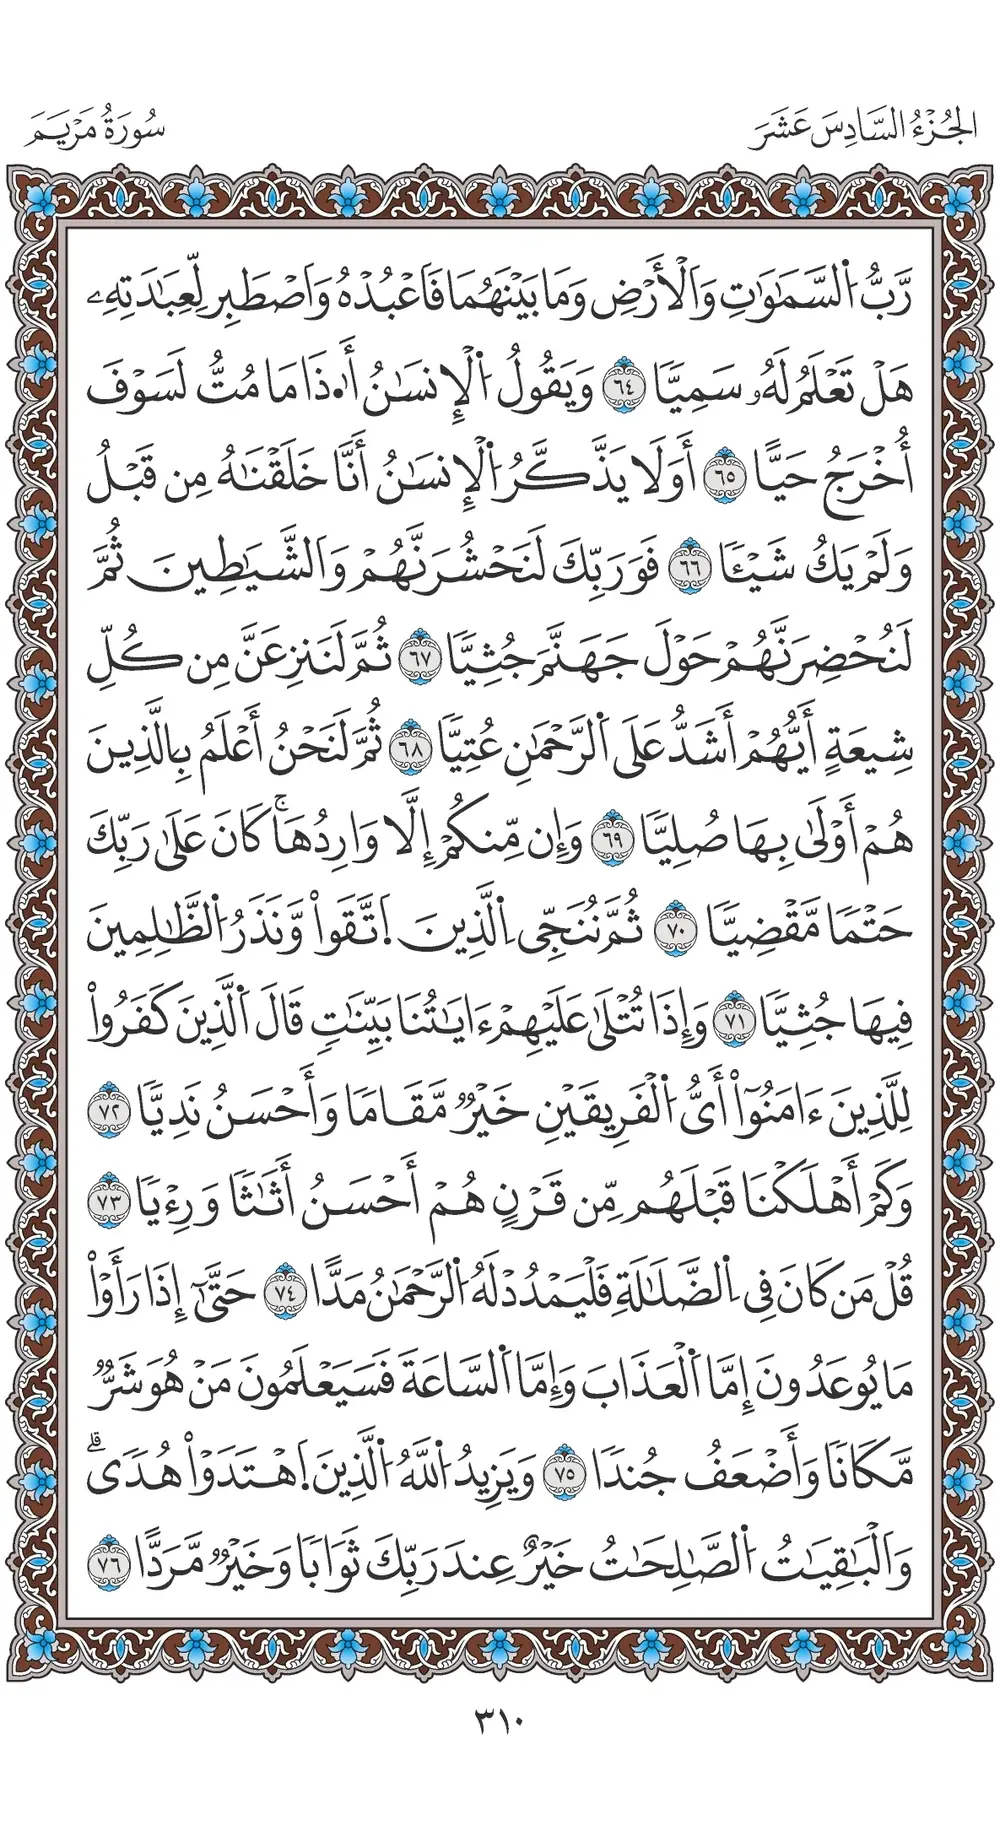 الجُزْءُ السَّادِسَ عَشَرَ
سُورَةُ مَرْيَمَ
رَّبُّ اُ۬لسَّمَٰوَٰتِ وَالْأَرْضِ وَمَا بَيْنَهُمَا فَاعْبُدْهُ وَاصْطَبِر لِّعِبَٰدَتِهِۦ
هَلْ تَعْلَمُ لَهُۥ سَمِيّٗا ٦٤ وَيَقُولُ اُ۬لْإِنسَٰنُ أَ۟ذَا مَا مُتُّ لَسَوْفَ
أُخْرَجُ حَيًّا ٦٥ أَوَلَا يَذَّكَّرُ اُ۬لْإِنسَٰنُ أَنَّا خَلَقْنَٰهُ مِن قَبْلُ
وَلَمْ يَكُ شَيْـٔٗا ٦٦ فَوَرَبِّكَ لَنَحْشُرَنَّهُمْ وَالشَّيَٰطِينَ ثُمَّ
لَنُحْضِرَنَّهُمْ حَوْلَ جَهَنَّمَ جُثِيّٗا ٦٧ ثُمَّ لَنَنزِعَنَّ مِن كُلِّ
شِيعَةٍ أَيُّهُمْ أَشَدُّ عَلَى اَ۬لرَّحْمَٰنِ عُتِيّٗا ٦٨ ثُمَّ لَنَحْنُ أَعْلَمُ بِالَّذِينَ
هُمْ أَوْلَىٰ بِهَا صُلِيّٗا ٦٩ وَإِن مِّنكُمْ إِلَّا وَارِدُهَاۚ كَانَ عَلَىٰ رَبِّكَ
حَتْمٗا مَّقْضِيّٗا ٧٠ ثُمَّ نُنَجِّي اِ۬لَّذِينَ اَ۪تَّقَواْ وَّنَذَرُ اُ۬لظَّٰلِمِينَ
فِيهَا جُثِيّٗا ٧١ وَإِذَا تُتْلَىٰ عَلَيْهِمْ ءَايَٰتُنَا بَيِّنَٰتٖ قَالَ اَ۬لَّذِينَ كَفَرُواْ
لِلَّذِينَ ءَامَنُوٓاْ أَيُّ اُ۬لْفَرِيقَيْنِ خَيْرٞ مَّقَامٗا وَأَحْسَنُ نَدِيّٗا ٧٢
وَكَمْ أَهْلَكْنَا قَبْلَهُم مِّن قَرْنٍ هُمْ أَحْسَنُ أَثَٰثٗا وَرِءْيٗا ٧٣
قُلْ مَن كَانَ فِي اِ۬لضَّلَٰلَةِ فَلْيَمْدُدْ لَهُ اُ۬لرَّحْمَٰنُ مَدًّا ٧٤ حَتَّىٰٓ إِذَا رَأَوْاْ
مَا يُوعَدُونَ إِمَّا اَ۬لْعَذَابَ وَإِمَّا اَ۬لسَّاعَةَ فَسَيَعْلَمُونَ مَنْ هُوَ شَرّٞ
مَّكَانٗا وَأَضْعَفُ جُندٗا ٧٥ وَيَزِيدُ اُ۬للَّهُ اُ۬لَّذِينَ اَ۪هْتَدَوْاْ هُدٗىۗ
وَالْبَٰقِيَٰتُ اُ۬لصَّٰلِحَٰتُ خَيْرٌ عِندَ رَبِّكَ ثَوَابٗا وَخَيْرٞ مَّرَدًّا ٧٦
٣١٠